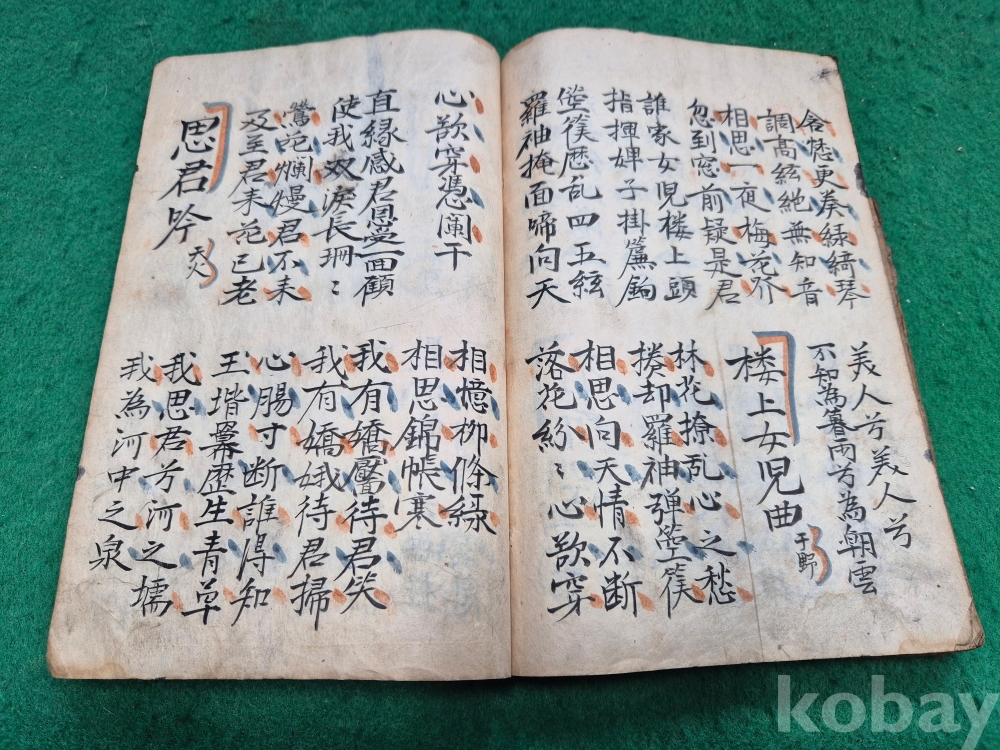 含愁更奏緑綺琴
調高絃絶無知音
美人兮美人兮
不知為暮雨兮為朝雲
相思一夜梅花發
忽到窓前疑是君
楼上女児曲 于野
誰家女児楼上頭
指揮婢子掛簾鉤
林花撩乱心之愁
捲却羅袖弾箜篌
箜篌歴乱四五絃
羅袖掩面啼向天
相思向天情不断
落花紛〻心欲穿
心欲穿憑闌干
相憶柳條緑
相思錦帳寒
直縁感君恩愛一面顧
使我双涙長珊〻
我有嬌靨待君笑
我有嬌娥待君掃
鶯花爛熳君不来
及至君来花已老
心腸寸断誰得知
玉堦冪歴生青草
思君吟 仝
我思君兮河之壖
我為河中之泉
kobay